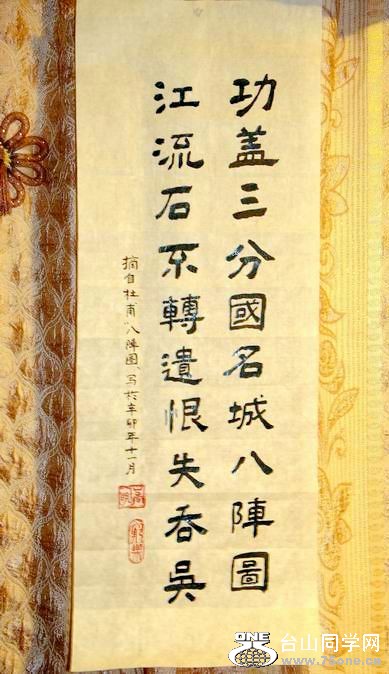 功盖三分國名城八陣圖
江流石不轉遺恨失吞吳
摘自杜甫"八陣图"写於辛卯年十一月
ONE
台山同学网
www.78one.cn